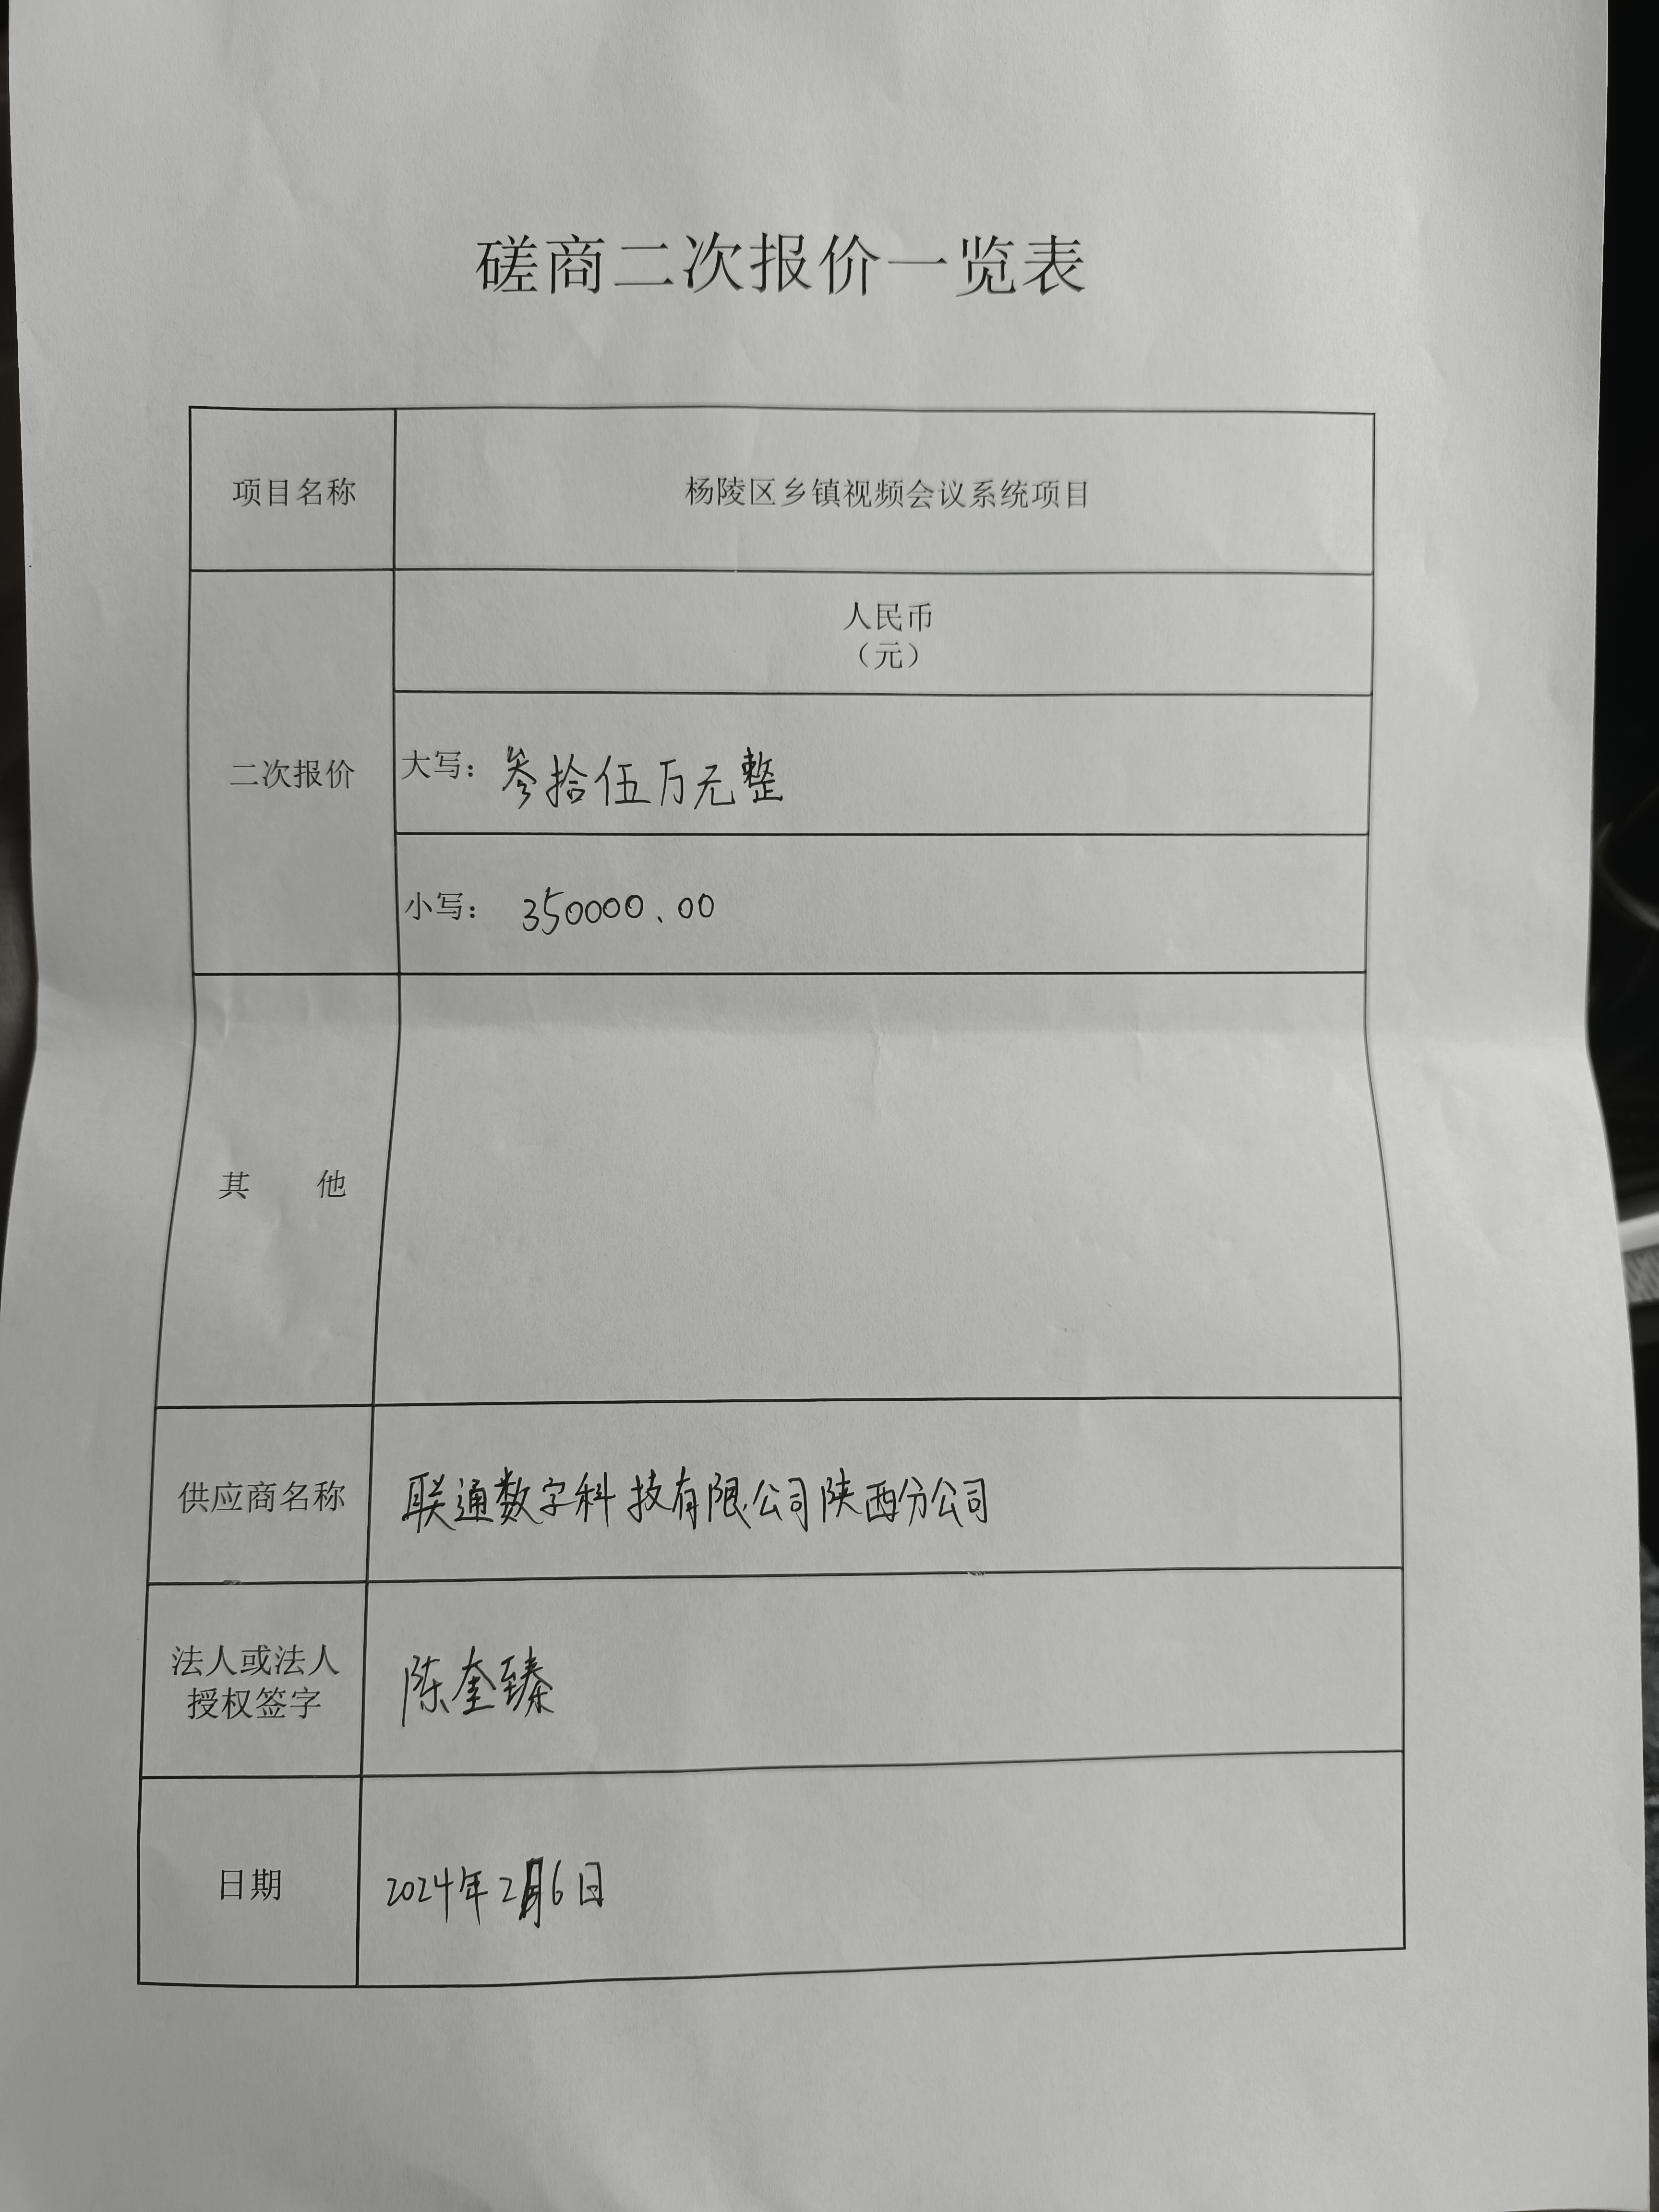 磋商二次报价一览表
项目名称
杨陵区乡镇视频会议系统项目
二次报价
人民币
（元）
大写：叁拾伍万元整
小写：350000.00
其 他
供应商名称
联通数字科技有限公司陕西分公司
法人或法人
授权签字
陈奎臻
日期
2024年2月6日